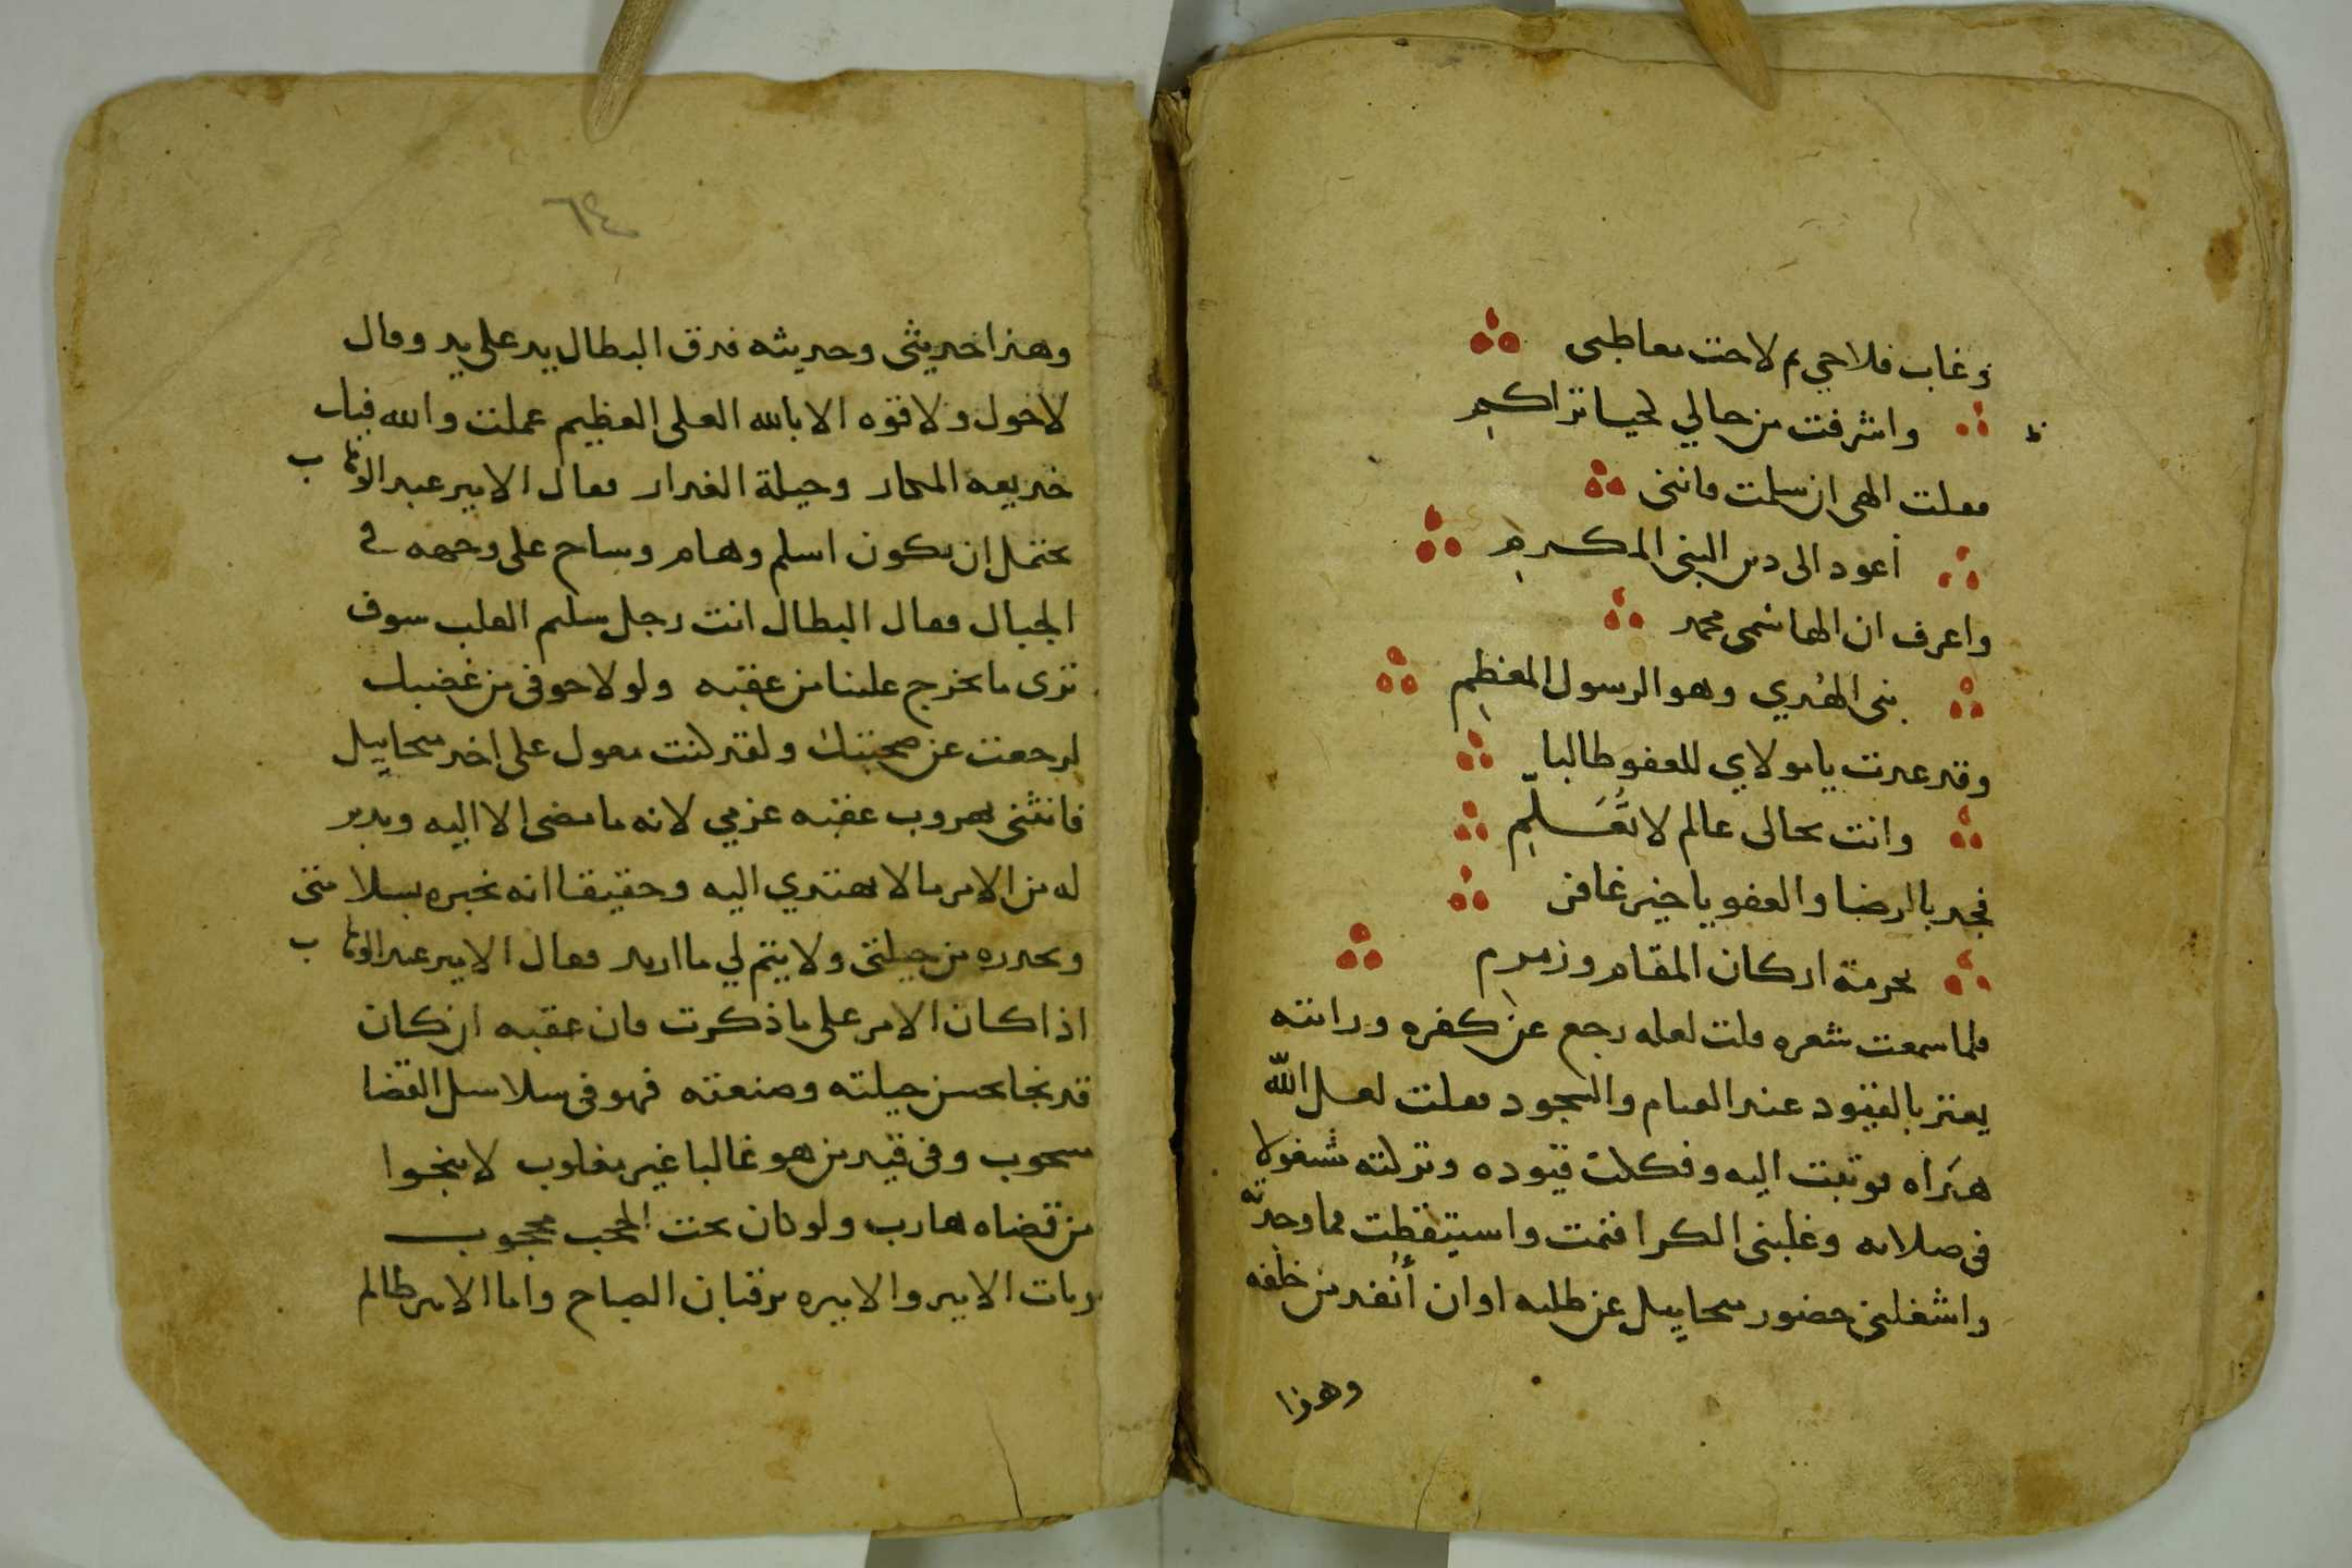 وغاب فلاحي م لاحت معاطبى
واشرفت من حالي لحيا تراكم
فقلت الهى ان سلمت فاننى
أعود الى دين النبى المكرم
واعرف ان الهاشمى محمد
نبى الهدي وهو الرسول المعظم
وقد عدت يا مولاي للعفو طالبا
وانت بحالى عالم لا تعلم
فجد بالرضا والعفو يا خير غافر
بحرمة اركان المقام وزمزم
فلما سمعت شعره قلت لعله رجع عن كفره ورايته
يعتر بالقيود عند القيام والسجود فقلت لعل الله
هداه فوثبت اليه وفككت قيوده وتركته مشغولا
فى صلاته وغلبنى الكرا فنمت واستيقظت فما وجدته
واشغلنى حضور سحاييل عن طلبه او ان أنفد من خلفه
وهذا
٦٤
وهذا حديثى وحديثه فدق البطال يد على يد وقال
لا حول ولا قوه الا بالله العلى العظيم عملت والله فيك
خديعة المكار وحيلة الغدار فقال الامير عبد الوهاب
يحتمل ان يكون اسلم وهام وساح على وجهه في
الجبال فقال البطال انت رجل سليم القلب سوف
ترى ما يخرج علينا من عقبه ولولا خوفى من غضبك
لرجعت عن صحبتك ولقد كنت معول على اخد سحاييل
فانثنى بهروب عقبه عزمي لانه ما مضى الا اليه ويدبر
له من الامر ما لا يهتدي اليه وحقيقا انه يخبره بسلامتى
ويحدره من حيلتى ولا يتم لي ما اريد فقال الامير عبد الوهاب
اذا كان الامر على ما ذكرت فان عقبه ان كان
قد نجا بحسن حيلته وصنعته فهو فى سلاسل القضا
مسحوب وفى قيد من هو غالبا غير مغلوب لا ينجوا
من قضاه هارب ولو كان تحت الحجب محجوب
وبات الامير والاميره يرقبان الصباح واما الامير ظالم